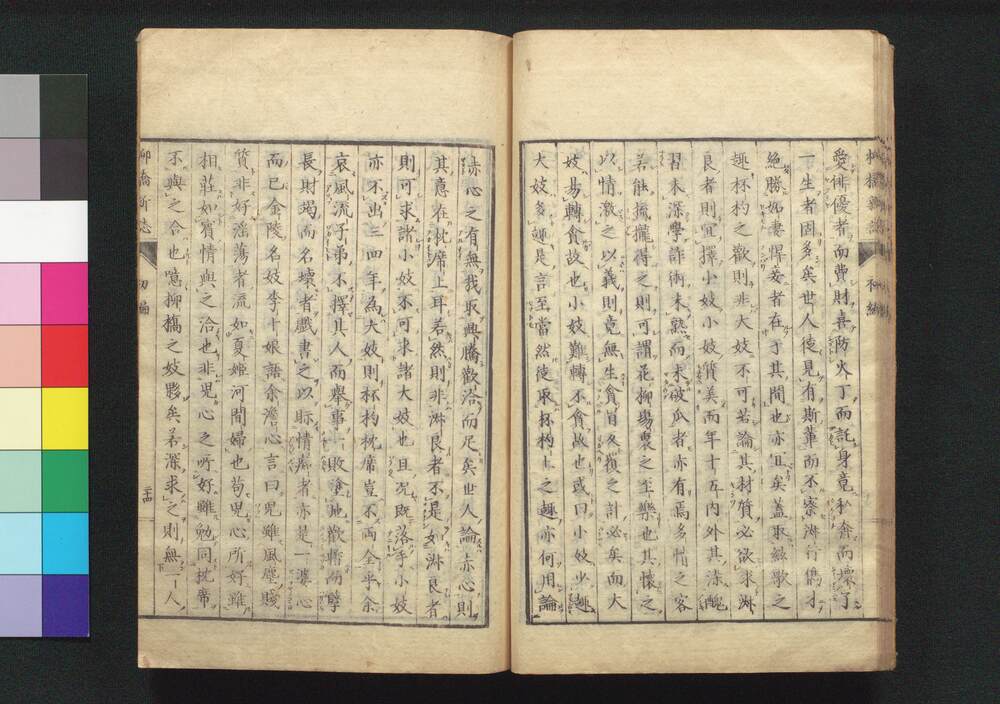 愛俳優者而費財喜防火丁而託身竟於奔而壞了
一生者固多矣世人徒見有斯輩而不察淑行儁才
絶勝如妻悍妾者在于其間也亦且矣蓋取絃歌之
趣杯杓之歡則非大妓不可若論其材質必欲求淋
良者則宜擇小妓小妓質美而年十五内外其漆醜
習未深學詐術未熟而未破瓜者亦有焉多情之客
若能梳攏得之則可謂花柳場裏之至樂也其懷之
以情激之以義則竟無生貪冒反覆之計必矣而大
妓易轉貪故也小妓難轉不貪故也或曰小妓少趣
大妓多趣是言至當然徒取杯杓上之趣亦何用論
赤心之有無我取興騰歡洽而足矣世人論赤心則
其意在枕席上耳若然則非淋良者不是如淋良者
則可求諸小妓不可求諸大妓也且況既落手小妓
亦不出三四年為大妓則杯杓枕席豈不兩全乎余
哀風流子弟不擇其人而舉事一敗塗地歡情幼孽
長財竭而名壞者戲書之以眎情癡者亦是一婆心
而已金陵名妓李十娘語余澹心言曰兒雖風塵賤
質非好淫蕩者流如夏姬河間婦也苟兒心所好雖
相莊如賓情與之洽也非兒心之所好雖勉同枕席
不與之合也噫柳橋之妓夥矣若深求之則無一人
柳橋新誌 初編 二十四